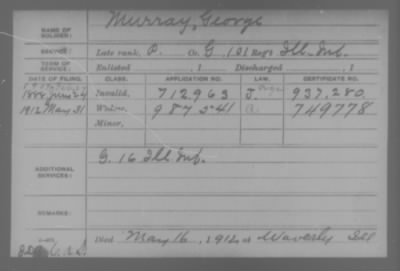 Murray, George
NAME OF SOLDIER:
SERVICE: Late rank, P. Co. G, 101 Reg't Ill. Inf.
TERM OF SERVICE: Enlisted , 1 Discharged , 1
DATE OF FILING. CLASS. APPLICATION NO. LAW. CERTIFICATE NO.
1888 June 29 Invalid, 712.963 J. 937.280
1912 May 31 Widow, 987541 749778
Minor,
G. 16 Ill. Inf.
ADDITIONAL SERVICES:
REMARKS:
Died May 16, 1912, at Waverly Ill